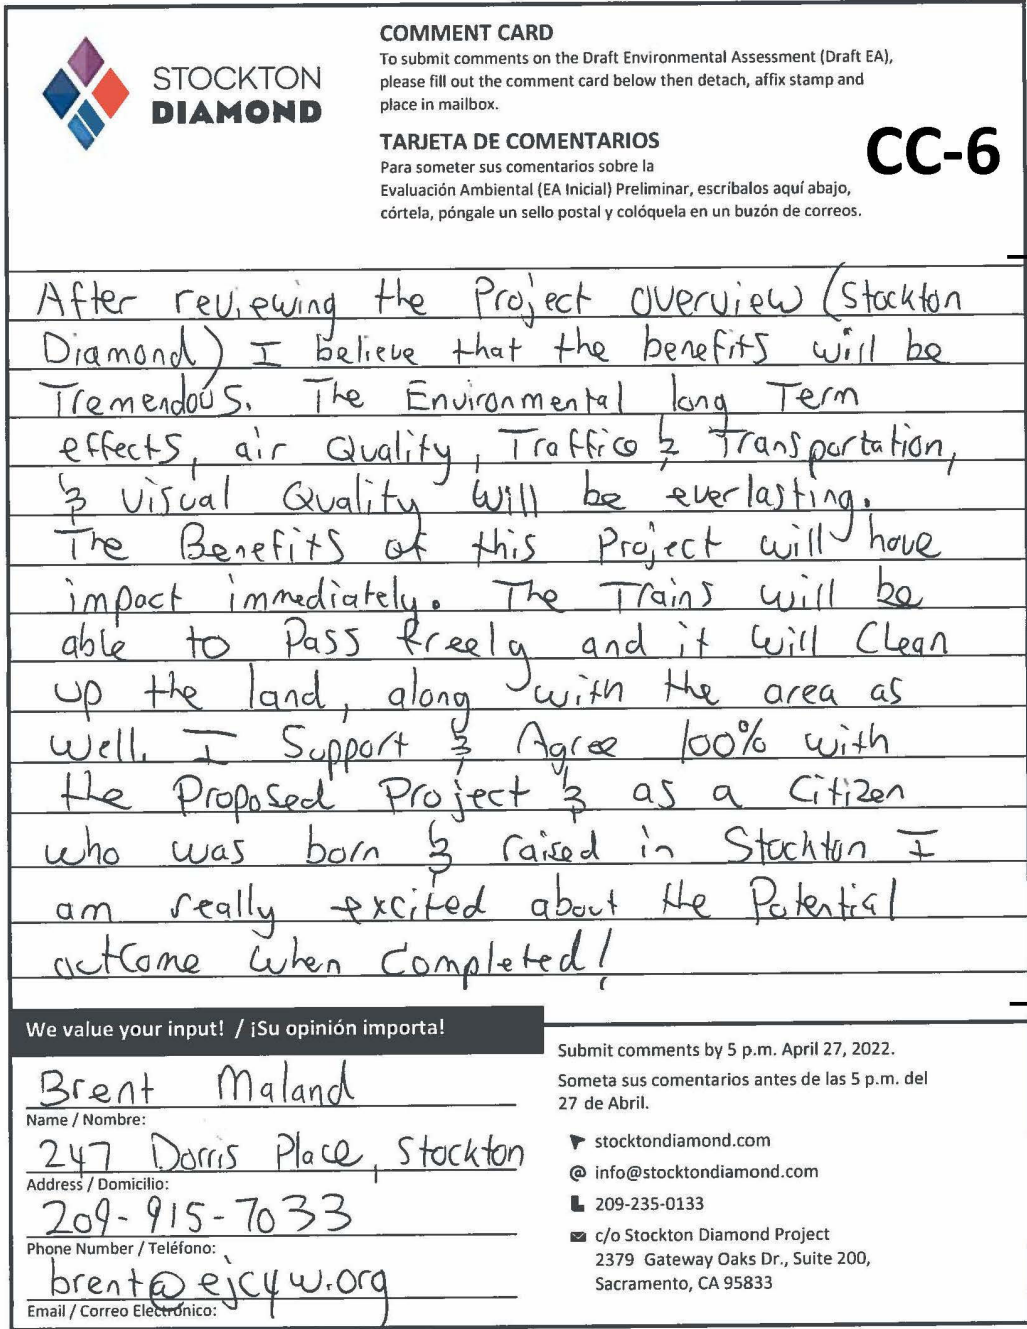 STOCKTON
DIAMOND
COMMENT CARD
To submit comments on the Draft Environmental Assessment (Draft EA),
please fill out the comment card below then detach, affix stamp and
place in mailbox.
TARJETA DE COMENTARIOS
Para someter sus comentarios sobre la
Evaluación Ambiental (EA Inicial) Preliminar, escríbalos aquí abajo,
córtela, póngale un sello postal y colóquela en un buzón de correos.
CC-6
After reviewing the Project overview (Stockton
Diamond) I believe that the benefits will be
Tremendous. The Environmental long Term
effects, air Quality, Traffic & Transportation,
& Visual Quality will be everlasting.
The Benefits of this Project will have
impact immediately. The Trains will be
able to Pass freely and it will Clean
up the land, along with the area as
Well. I Support & Agree 100% with
the Proposed Project & as a Citizen
who was born & raised in Stockton I
am really excited about the Potential
outcome when Completed!
We value your input! / ¡Su opinión importa!
Brent Maland
Name / Nombre:
247 Dorris Place, Stockton
Address / Domicilio:
209-915-7033
Phone Number / Teléfono:
brent@ejc4w.org
Email / Correo Electrónico:
Submit comments by 5 p.m. April 27, 2022.
Someta sus comentarios antes de las 5 p.m. del
27 de Abril.
stocktondiamond.com
info@stocktondiamond.com
209-235-0133
c/o Stockton Diamond Project
2379 Gateway Oaks Dr., Suite 200,
Sacramento, CA 95833